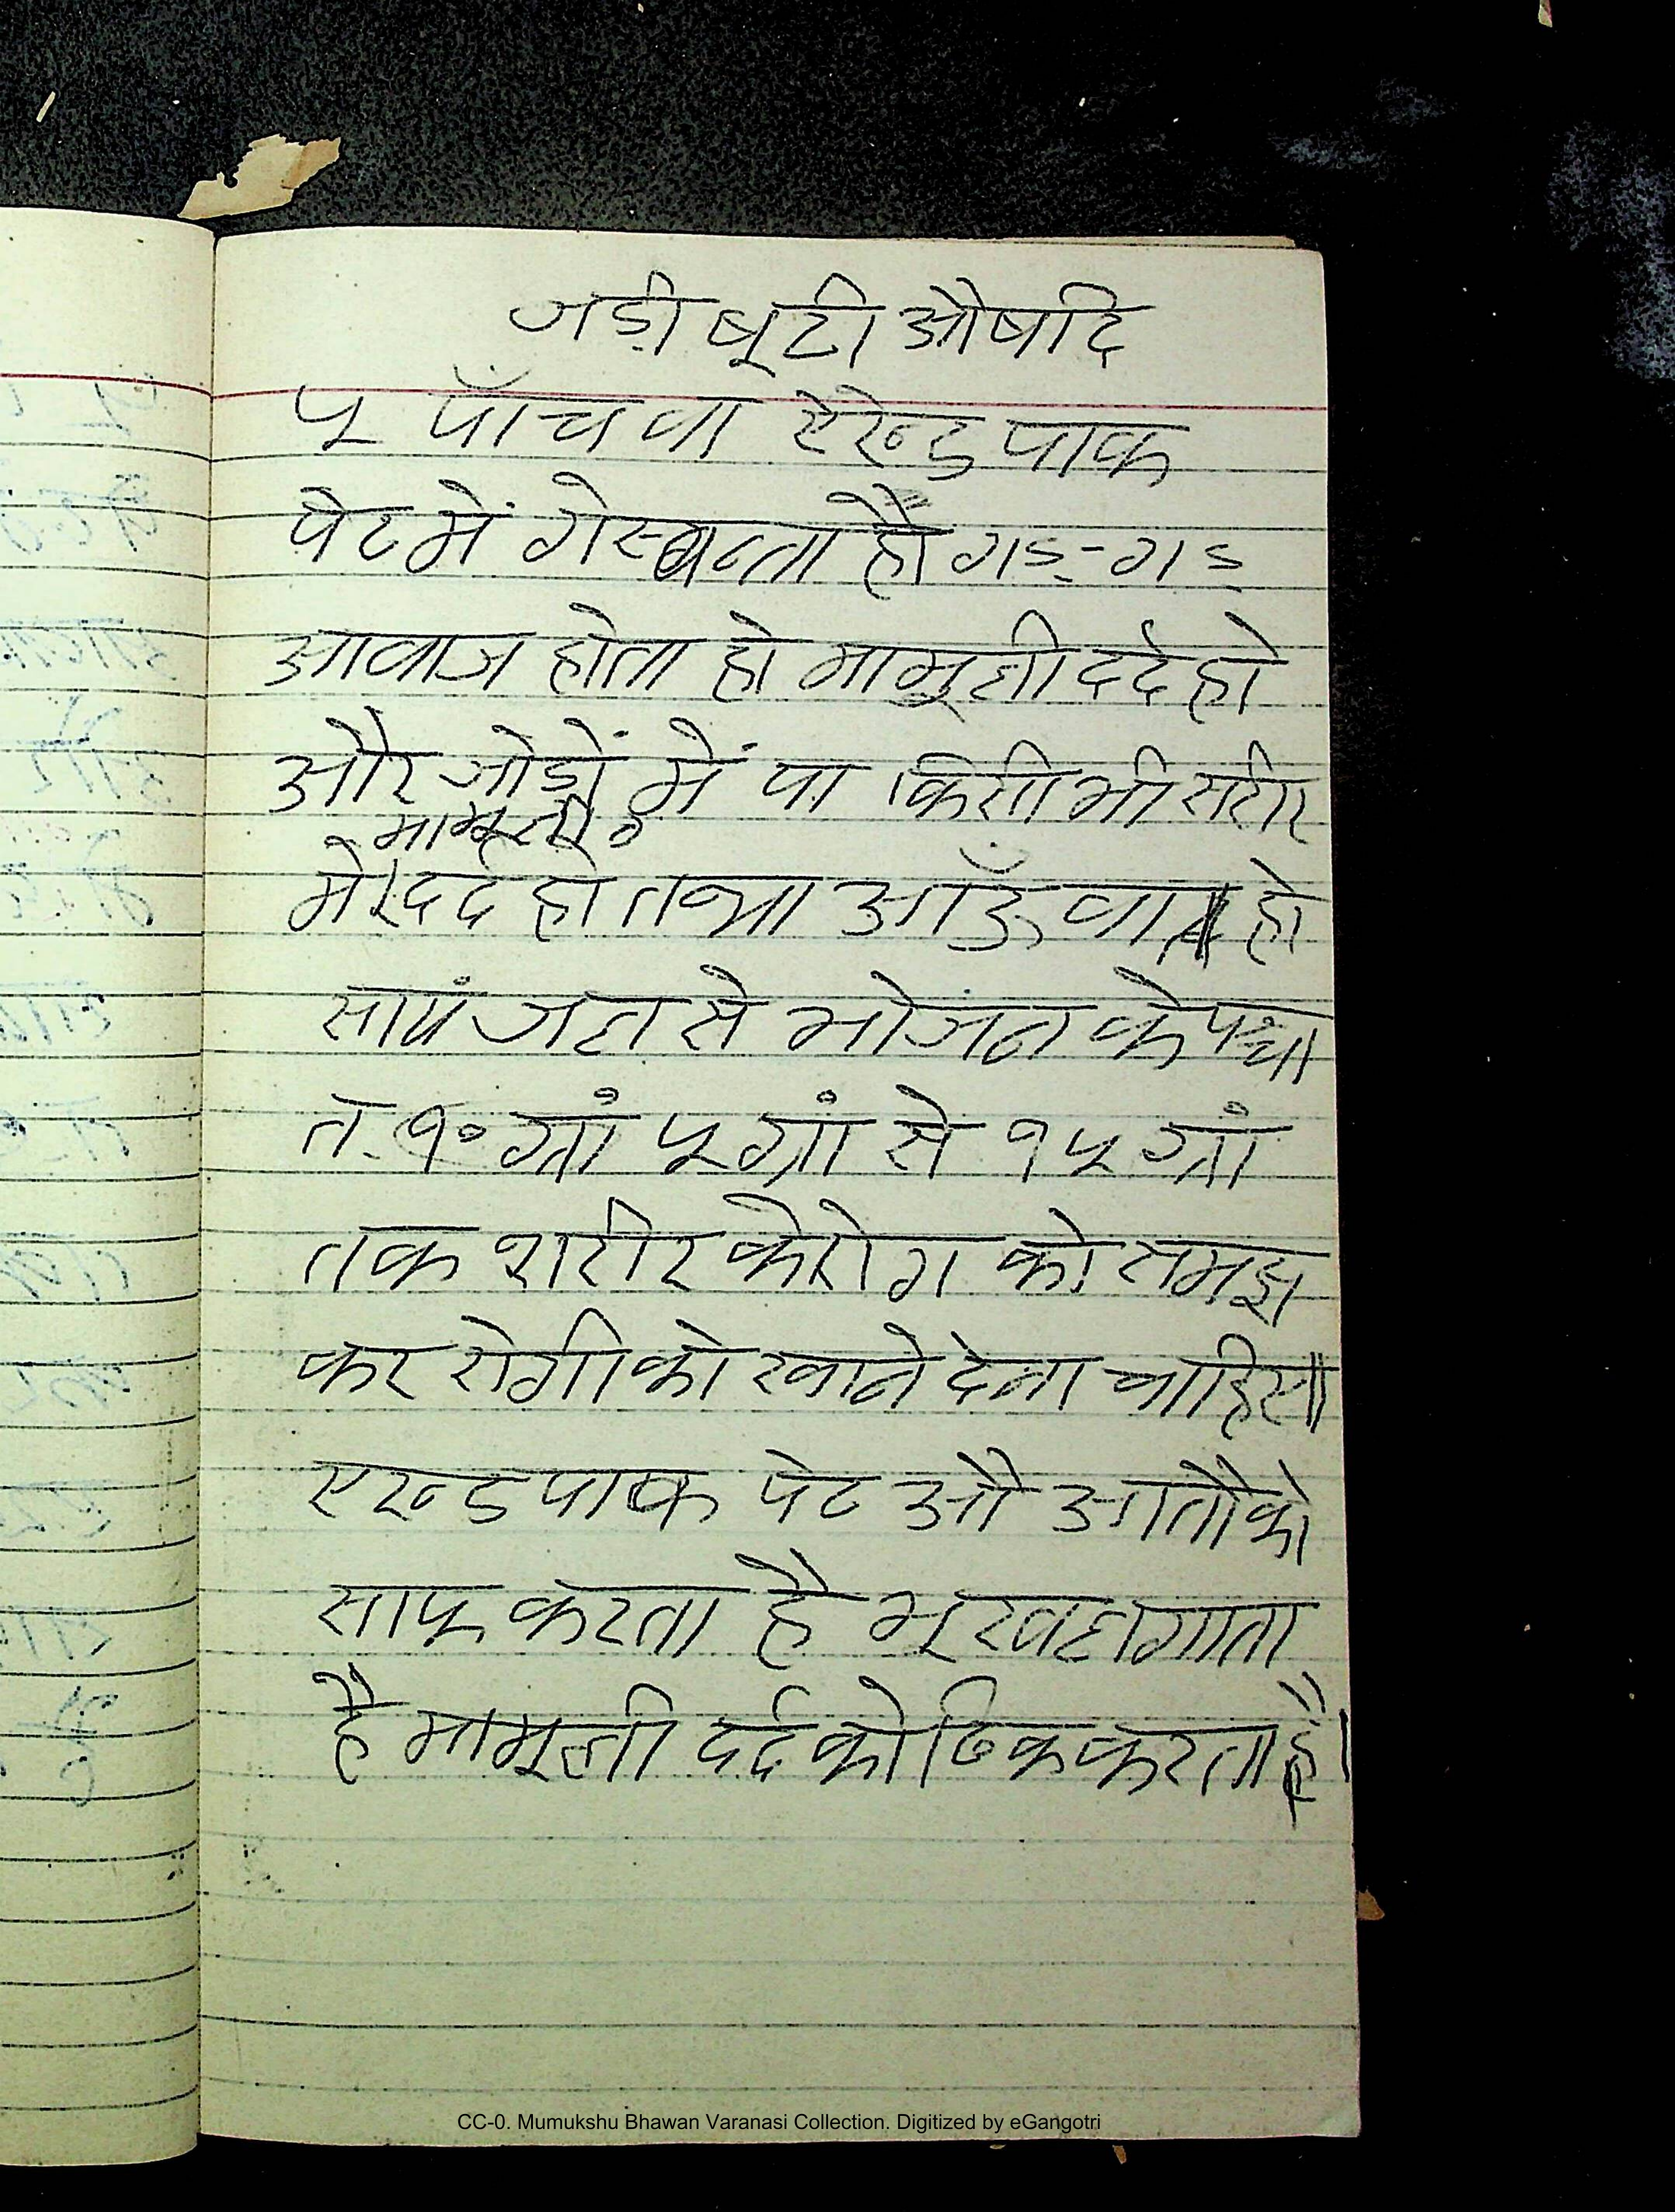 जडी़ बूटी औषदि
५ पाँचवा ऐरेन्ड पाक
पेट में गेस बनता हो गड़-गड़
आवाज होता हो मामूली दर्द हो
और जोडो़ं में या किसी भी सरीर
मामूली
में दर्द हो तथा आँऊ वात हो
सायं जल से भोजन के पश्चा
त १० ग्रां ५ ग्रां से १५ ग्रां
तक शरीर के रोग को समझ
कर रोगी को खाने देना चाहिए॥
एरन्ड पाक पेट औ आतौ को
साफ करता है भूख लगाता
है मामूली दर्द को ठिक करता है।
CC-0. Mumukshu Bhawan Varanasi Collection. Digitized by eGangotri